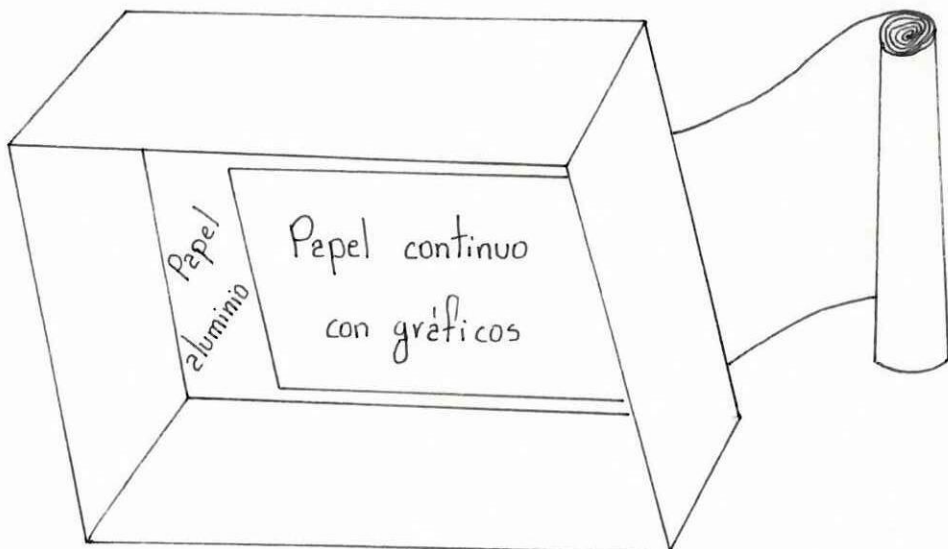 Papel
aluminio
Papel continuo
con gráficos